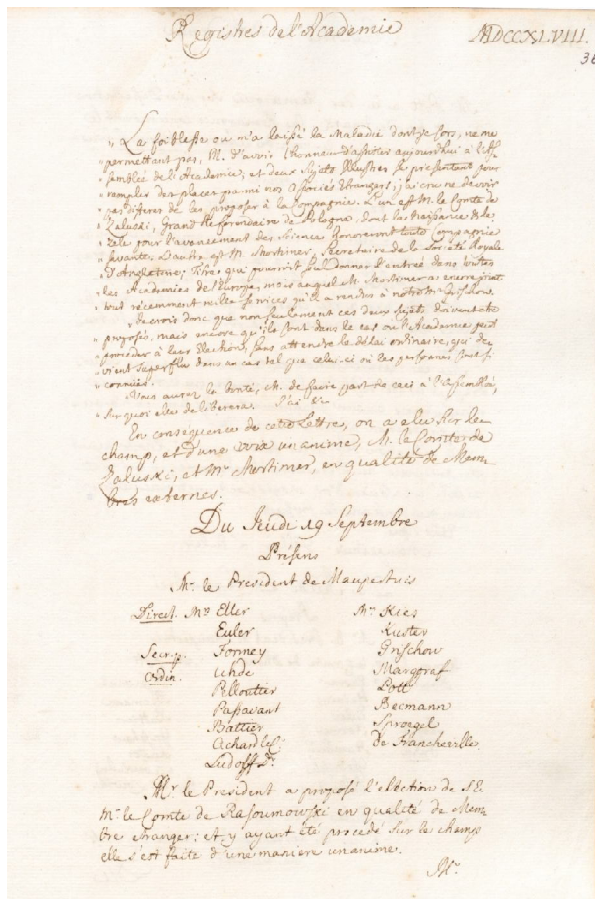 Registres de l'Academie
MDCCXLVIII.
36
" La foiblesse où m'a laissé la Maladie dont je sors, ne me
" permettant pas, M. d'avoir l'honneur d'assister aujourd'hui à l'Ass-
" semblée de l'Academie, et deux Sujets Illustres se presentant pour
" remplir des places parmi nos Associés Etrangers; j'ai cru ne devoir
" pas differer de les proposer à la Compagnie. L'un est M. le Comte de
" Zaluski, Grand Referendaire de Pologne, dont la naissance & le
" zele pour l'avancement des Sciences honoreront toute Compagnie
" savante. L'autre est M. Mortimer, Secretaire de la Societé Royale
" d'Angleterre; Titre, qui pourroit seul donner l'entrée dans toutes
" les Academies de l'Europe, mais auquel M. Mortimer a encore joint
" tout récemment mille services qu'il a rendus à notre M. Grischow.
" Je crois donc que non seulement ces deux sujets doivent etre
" proposés, mais encore qu'ils sont dans le cas où l'Academie peut
" proceder à leur Election, sans attendre le délai ordinaire, qui de-
" vient superflu dans un cas tel que celui-ci où les personnes sont si
" connües.
" Vous aurez la bonté, M. de faire part de ceci à l'Assemblée,
" sur quoi elle deliberera. J'ai &c.
En consequence de cette Lettre, on a elu sur le
champ, et d'une voix unanime, M. le Comte de
Zaluski, et Mr. Mortimer, en qualité de Mem-
bres externes.
Du Jeudi 19 Septembre
Présens
Mr. le President de Maupertuis
Direct. Mrs Eller
Euler
Secr. p. Formey
Ordin. Uhde
Pelloutier
Passavant
Battier
Achard le C.
Ludolff Sr.
Mrs. Kies
Kuster
Grischow
Marggraf
Pott
Becmann
Sproegel
De Francheville.
Mr. le President a proposé l'election de S.E.
Mr. le Comte de Rasoumowski en qualité de Mem-
bre etranger; et y ayant été procedé sur le champ
elle s'est faite d'une maniere unanime.
Mr.